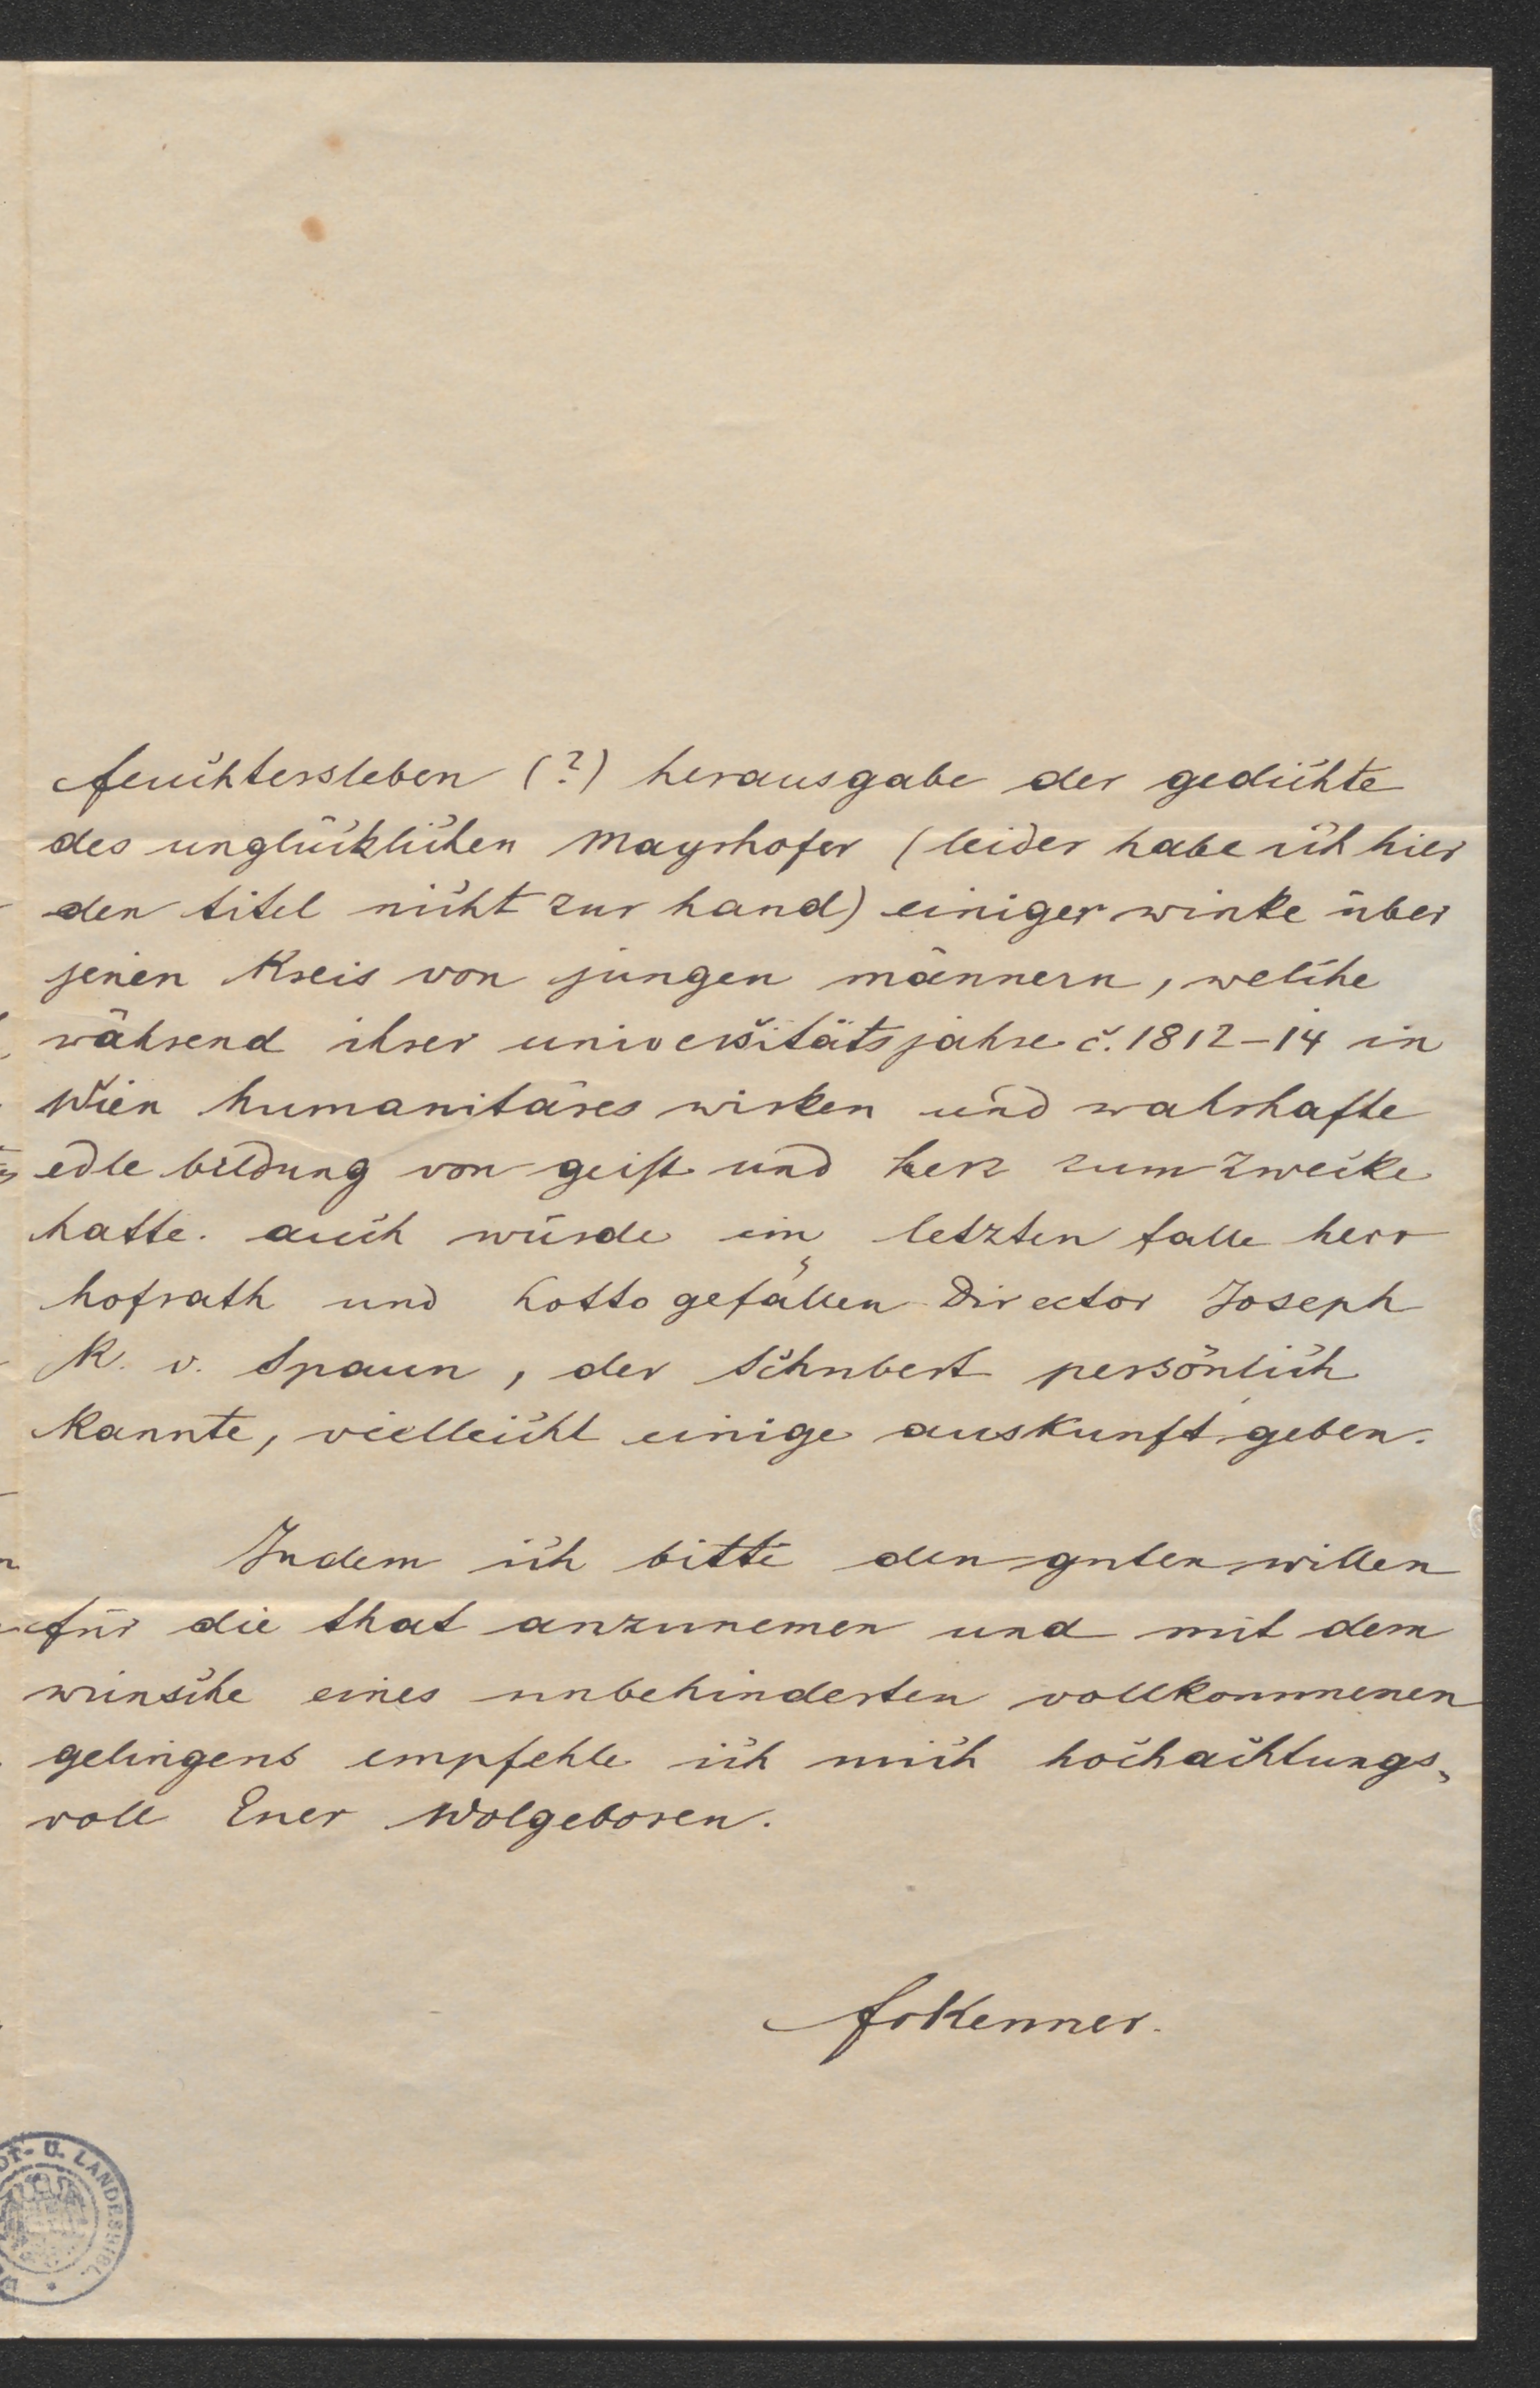 feuchtersleben (?) herausgabe der gedichte
des unglücklichen Mayrhofer (leider habe ich hier
den titel nicht zur hand) einiger winke über
jenen Kreis von jungen männern, welche
während ihrer universitätsjahre c. 1812-14 in
Wien humanitäres wirken und wahrhafte
edle bildung von geist und herz zum Zwecke
hatte. auch würde im letzten falle herr
hofrath und Lottogefällen Director Joseph
R. v. Spaun, der Schubert persönlich
kannte, vielleicht einige auskunft geben.
Indem ich bitte den guten willen
für die that anzunemen und mit dem
wunsche eines unbehinderten vollkommenen
gelingens empfehle ich mich hochachtungs-
voll Euer Wolgeboren.
frKenner.
DT- U. LANDESBIBL.